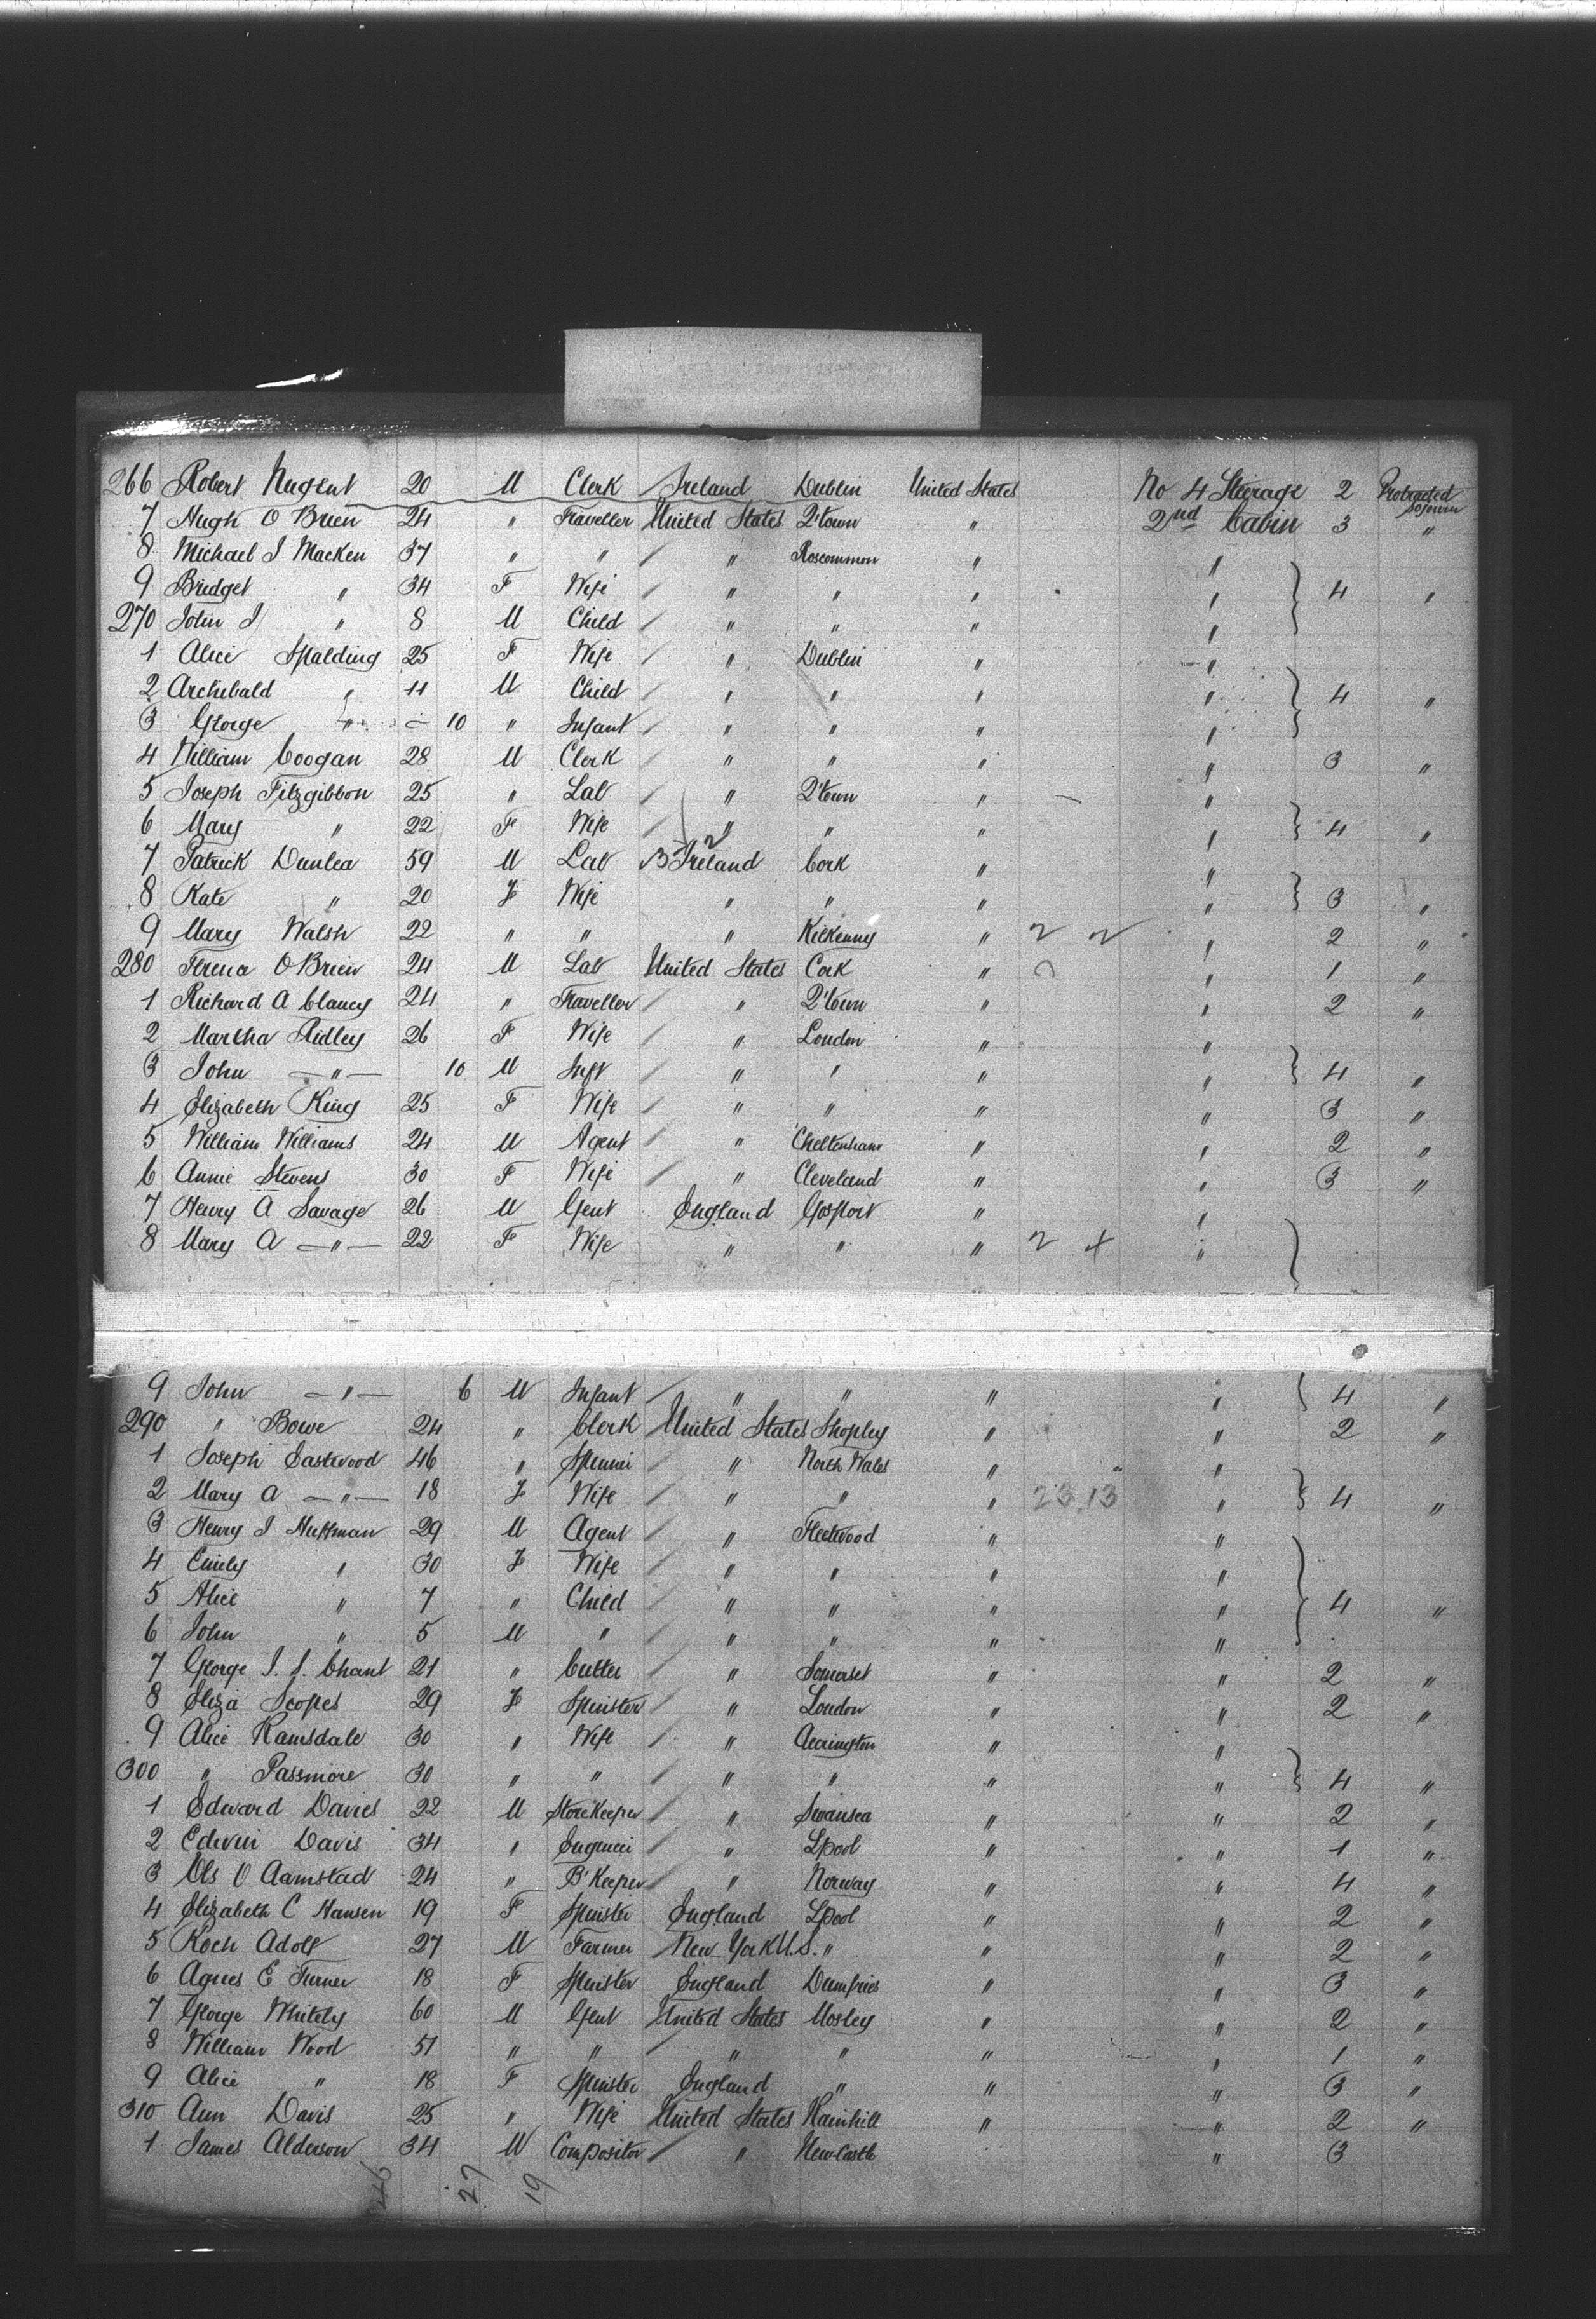 266 Robert Nugent 20 M Clerk Ireland Dublin United States No 4 Steerage 2 Protracted Sojourn
7 Hugh O Brien 24 " Traveller United States Q'town " 2nd Cabin 3 "
8 Michael J Macken 37 " " / " Roscommon " "
9 Bridget " 34 F Wife / " " " " } 4 "
270 John J " 8 M Child / " " " "
1 Alice Spalding 25 F Wife / " Dublin " "
2 Archibald " 11 M Child / " " " " } 4 "
3 George " - 10 " Infant / " " " "
4 William Coogan 28 M Clerk / " " " " 3 "
5 Joseph Fitzgibbon 25 " Lab / " Q'town " "
6 Mary " 22 F Wife / " " " " } 4 "
7 Patrick Dunlea 59 M Lab Ireland Cork " "
8 Kate " 20 F Wife " " " " } 3 "
9 Mary Walsh 22 " " " Kilkenny " 2 2 " 2 "
280 O Brien 24 M Lab United States Cork " " 1 "
1 Richard A Clancy 24 " Traveller / " Q'town " " 2 "
2 Martha Ridley 26 F Wife / " London " "
3 John —"— 10 M Inft / " " " " } 4 "
4 Elizabeth King 25 F Wife / " " " " 3 "
5 William Williams 24 M Agent / " Cheltenham " " 2 "
6 Annie Stevens 30 F Wife / " Cleveland " " 3 "
7 Henry A Savage 26 M Gent England Gosport " "
8 Mary A —"— 22 F Wife " " " 2 x " }
9 John —"— 6 M Infant / " " " " } 4 "
290 " Bowe 24 " Clerk United States Shopley " " 2 "
1 Joseph Eastwood 46 " / " North Wales " "
2 Mary A —"— 18 F Wife / " " " 23.13 " } 4 "
3 Henry J Huffman 29 M Agent / " Fleetwood " "
4 Emily " 30 F Wife / " " " "
5 Alice " 7 " Child / " " " " } 4 "
6 John " 5 M " / " " " "
7 George J. J. Chant 21 " Cutter / " Somerset " " 2 "
8 Eliza Scopes 29 F Spinster / " London " " 2 "
9 Alice Ramsdale 30 " Wife / " Accrington " "
300 " Passmore 30 " " / " " " " } 4 "
1 Edward Davies 22 M Storekeeper / " Swansea " " 2 "
2 Edwin Davis 34 " Engineer / " Lpool " " 1 "
3 Ols O Aamstad 24 " B'Keeper / " Norway " " 4 "
4 Elizabeth C Hansen 19 F Spinster England Lpool " " 2 "
5 Koch Adolf 27 M Farmer New York U.S. " " " 2 "
6 Agnes E Turner 18 F Spinster England Dumfries " " 3 "
7 George Whitely 60 M Gent United States Mosley " " 2 "
8 William Wood 51 " " / " " " " 1 "
9 Alice " 18 F Spinster England " " " 3 "
310 Ann Davis 25 " Wife United States Rainhill " " 2 "
1 James Alderson 34 M Compositor / " New-Castle " 3
246 27 19